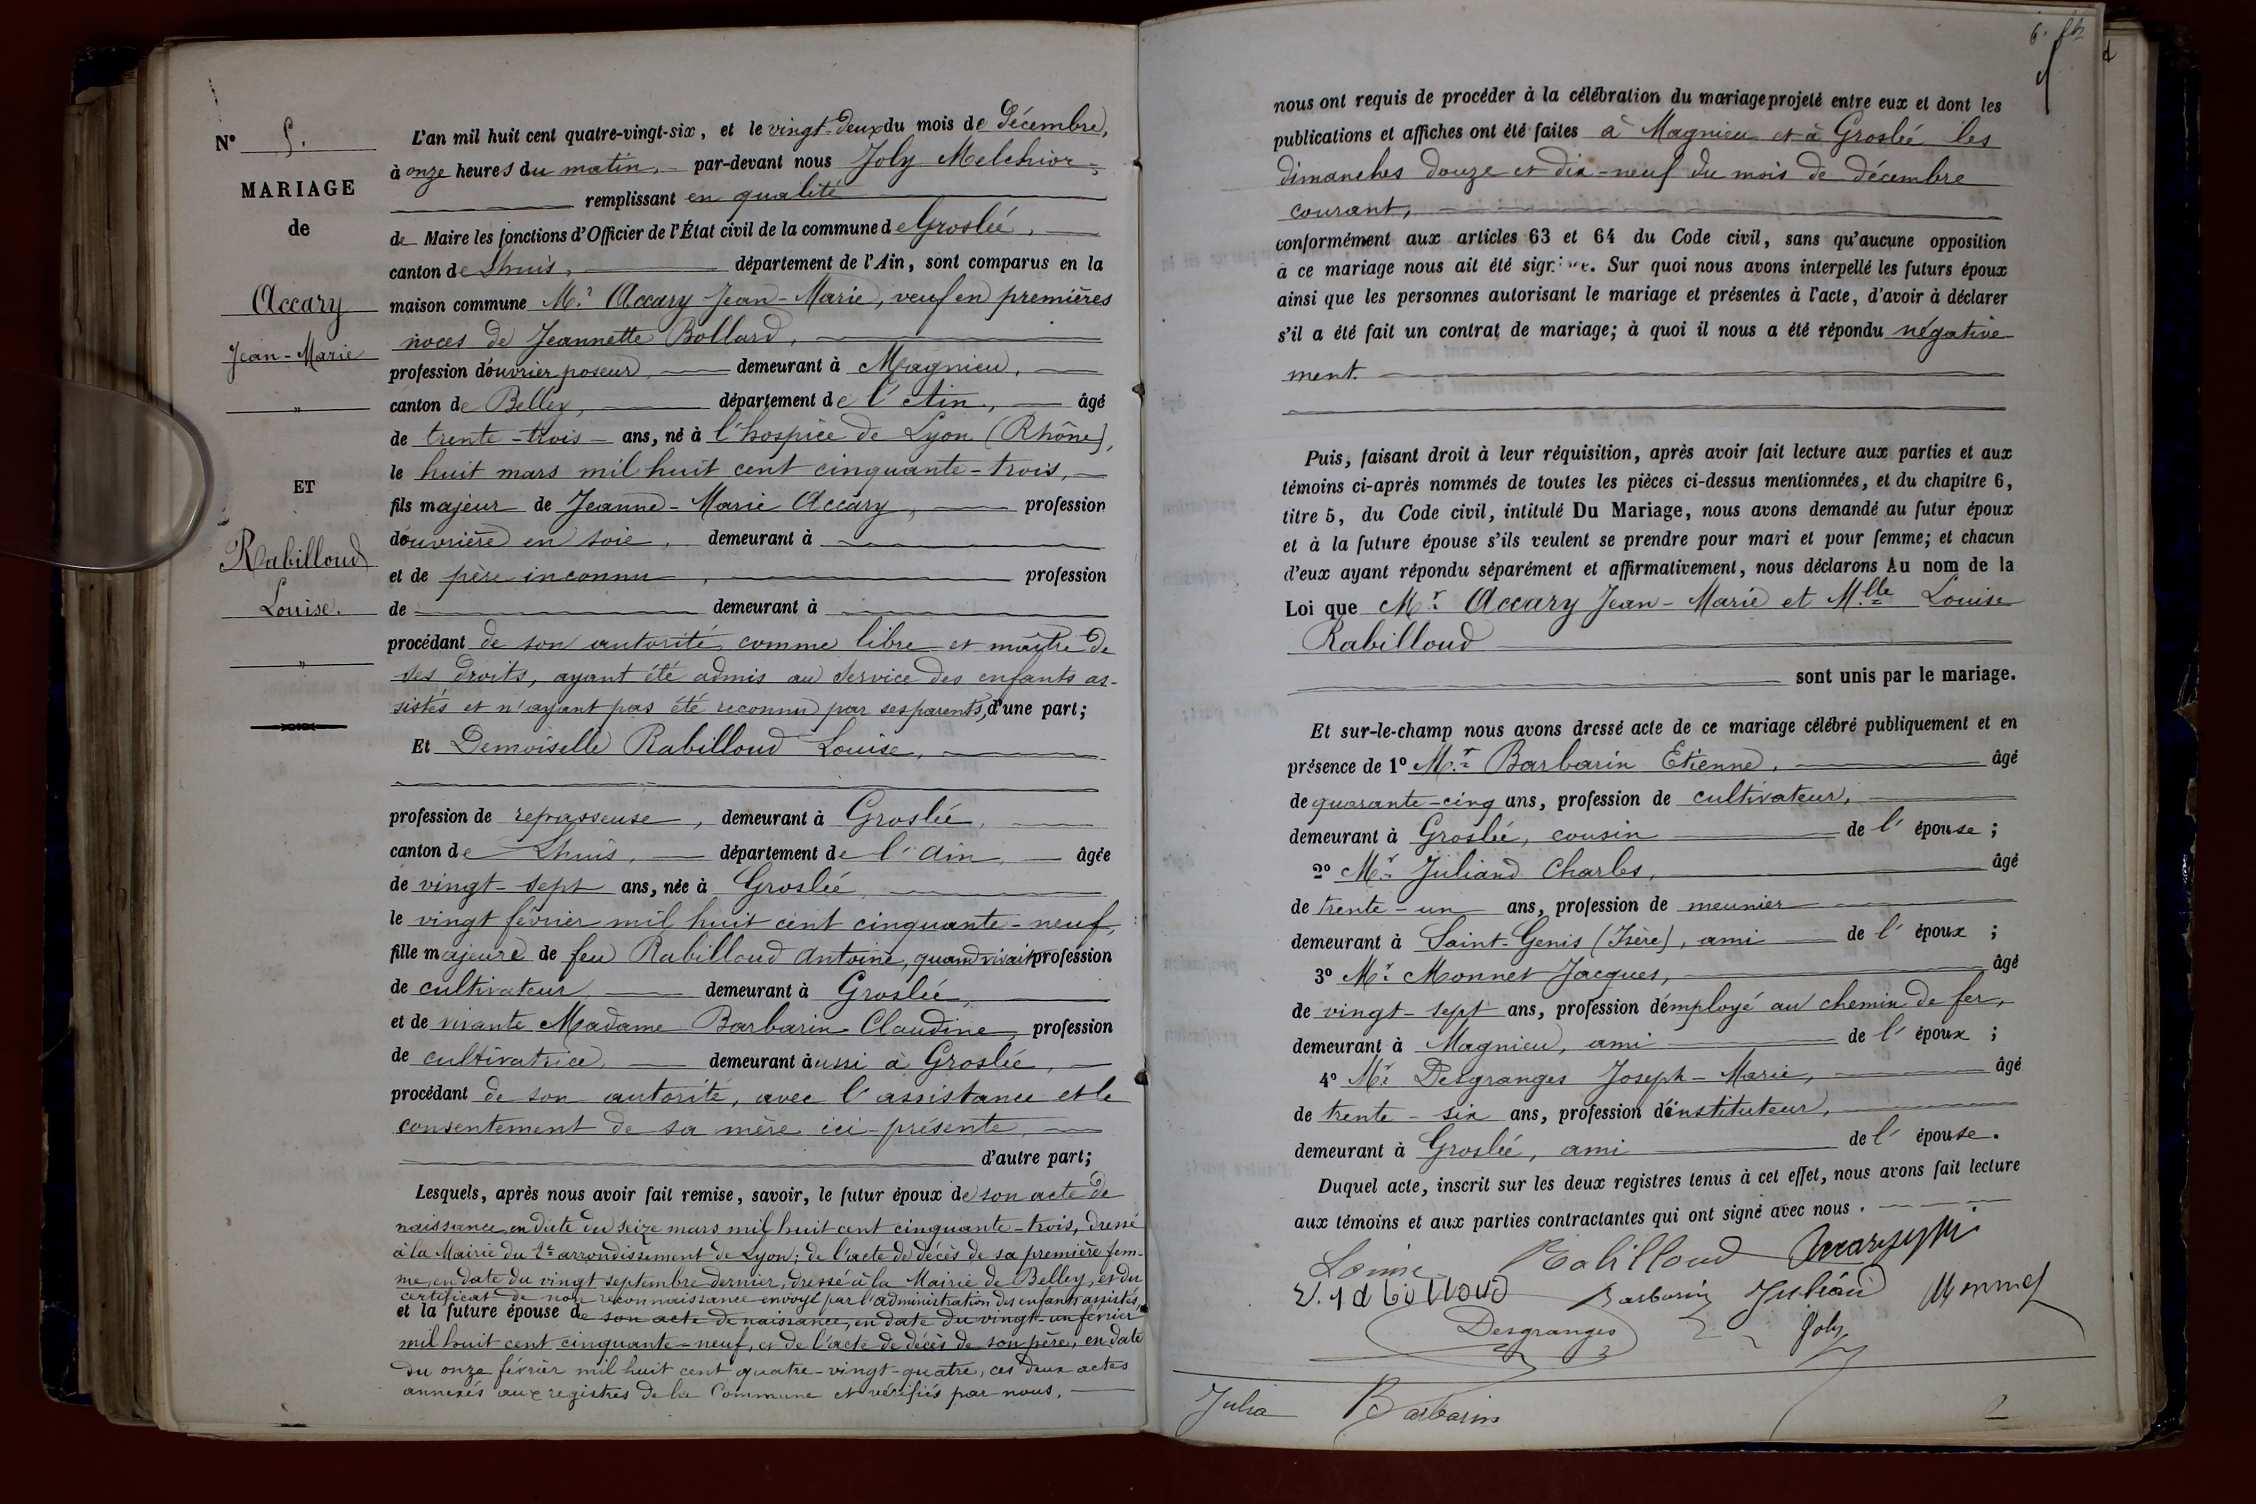 N° 5.
MARIAGE
de
Accary
Jean-Marie
"
ET
Rabilloud
Louise.
"
L'an mil huit cent quatre-vingt-six, et le vingt-deux du mois de Décembre,
à onze heures du matin, par-devant nous Joly Melchior,
remplissant en qualité
de Maire les fonctions d'Officier de l'État civil de la commune de Groslée,
canton de Lhuis, département de l'Ain, sont comparus en la
maison commune Mr. Accary Jean-Marie, veuf en premières
noces de Jeannette Bollard,
profession d'ouvrier poseur, demeurant à Magnieu,
canton de Belley, département de l'Ain, âgé
de trente-trois ans, né à l'hospice de Lyon (Rhône),
le huit mars mil huit cent cinquante-trois,
fils majeur de Jeanne-Marie Accary, profession
d'ouvrière en soie, demeurant à
et de père inconnu, profession
de demeurant à
procédant de son autorité comme libre et maître de
ses droits, ayant été admis au service des enfants as-
sistés et n'ayant pas été reconnu par ses parents, d'une part;
Et Demoiselle Rabilloud Louise,
profession de repasseuse, demeurant à Groslée,
canton de Lhuis, département de l'Ain, âgée
de vingt-sept ans, née à Groslée
le vingt février mil huit cent cinquante-neuf,
fille majeure de feu Rabilloud Antoine, quand vivait profession
de cultivateur, demeurant à Groslée,
et de vivante Madame Barbarin Claudine, profession
de cultivatrice, demeurant aussi à Groslée,
procédant de son autorité, avec l'assistance et le
consentement de sa mère ici-présente,
d'autre part;
Lesquels, après nous avoir fait remise, savoir, le futur époux de son acte de
naissance en date du seize mars mil huit cent cinquante-trois, dressé
à la Mairie du 2e arrondissement de Lyon; de l'acte de décès de sa première fem-
me, en date du vingt septembre dernier, dressé à la Mairie de Belley, et du
certificat de non reconnaissance envoyé par l'administration des enfants assistés,
et la future épouse de son acte de naissance, en date du vingt-un février
mil huit cent cinquante-neuf, et de l'acte de décès de son père, en date
du onze février mil huit cent quatre-vingt-quatre, ces deux actes
annexés aux registres de la Commune et vérifiés par nous.
nous ont requis de procéder à la célébration du mariage projeté entre eux et dont les
publications et affiches ont été faites à Magnieu et à Groslée les
dimanches douze et dix-neuf du mois de décembre
courant,
conformément aux articles 63 et 64 du Code civil, sans qu'aucune opposition
à ce mariage nous ait été signifiée. Sur quoi nous avons interpellé les futurs époux
ainsi que les personnes autorisant le mariage et présentes à l'acte, d'avoir à déclarer
s'il a été fait un contrat de mariage; à quoi il nous a été répondu négative-
ment.
Puis, faisant droit à leur réquisition, après avoir fait lecture aux parties et aux
témoins ci-après nommés de toutes les pièces ci-dessus mentionnées, et du chapitre 6,
titre 5, du Code civil, intitulé Du Mariage, nous avons demandé au futur époux
et à la future épouse s'ils veulent se prendre pour mari et pour femme; et chacun
d'eux ayant répondu séparément et affirmativement, nous déclarons Au nom de la
Loi que Mr. Accary Jean-Marie et Mlle Louise
Rabilloud
sont unis par le mariage.
Et sur-le-champ nous avons dressé acte de ce mariage célébré publiquement et en
présence de 1° Mr. Barbarin Etienne, âgé
de quarante-cinq ans, profession de cultivateur,
demeurant à Groslée, cousin de l'épouse;
2° Mr. Juliand Charles, âgé
de trente-un ans, profession de meunier
demeurant à Saint-Genis (Isère), ami de l'époux;
3° Mr. Monnet Jacques, âgé
de vingt-sept ans, profession d'employé au chemin de fer,
demeurant à Magnieu, ami de l'époux;
4° Mr. Desgranges Joseph-Marie, âgé
de trente-six ans, profession d'instituteur,
demeurant à Groslée, ami de l'épouse.
Duquel acte, inscrit sur les deux registres tenus à cet effet, nous avons fait lecture
aux témoins et aux parties contractantes qui ont signé avec nous.
Louise Rabilloud
Barbarin Juliand Monnet
Desgranges Joly
Julia Barbarin